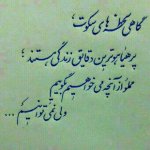 گاهی لحظه های سکوت؛
پرهیاهوترین دقایق زندگی هستند؛
مملو از آنچه می خواهیم بگوییم
ولی نمی توانیم...